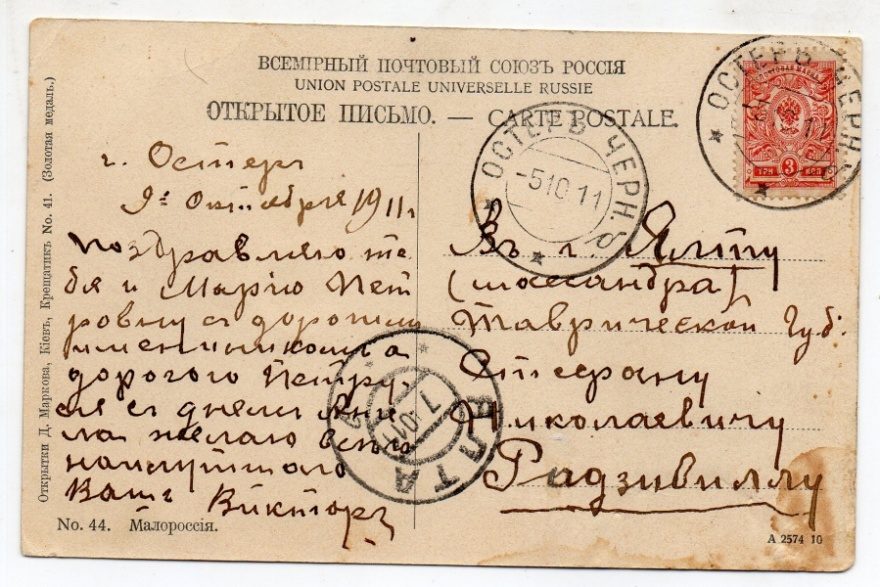 ВСЕМІРНЫЙ ПОЧТОВЫЙ СОЮЗЪ РОССІЯ
UNION POSTALE UNIVERSELLE RUSSIE
ОТКРЫТОЕ ПИСЬМО. — CARTE POSTALE.
ОСТЕРЪ ЧЕРН. Г.
ТРИ 3 КОП
ОСТЕРЪ ЧЕРН. Г.
-5 10 11
г. Остеръ
Октября 1911 г
Поздравляю те
бя и Марію Пет
ровну съ дорогим
именинником а
дорогого Петру
ся с днем Анге
ла желаю всего
наилучшаго
Вашъ Викторъ
Въ г. Ялту
(Массандра)
Таврической Губ.
Стефану
Николаевичу
Радзивиллу
ЯЛТА
Открытки Д. Маркова, Кіевъ, Крещатикъ No. 41. (Золотая медаль.)
No. 44. Малороссія.
А 2574 10